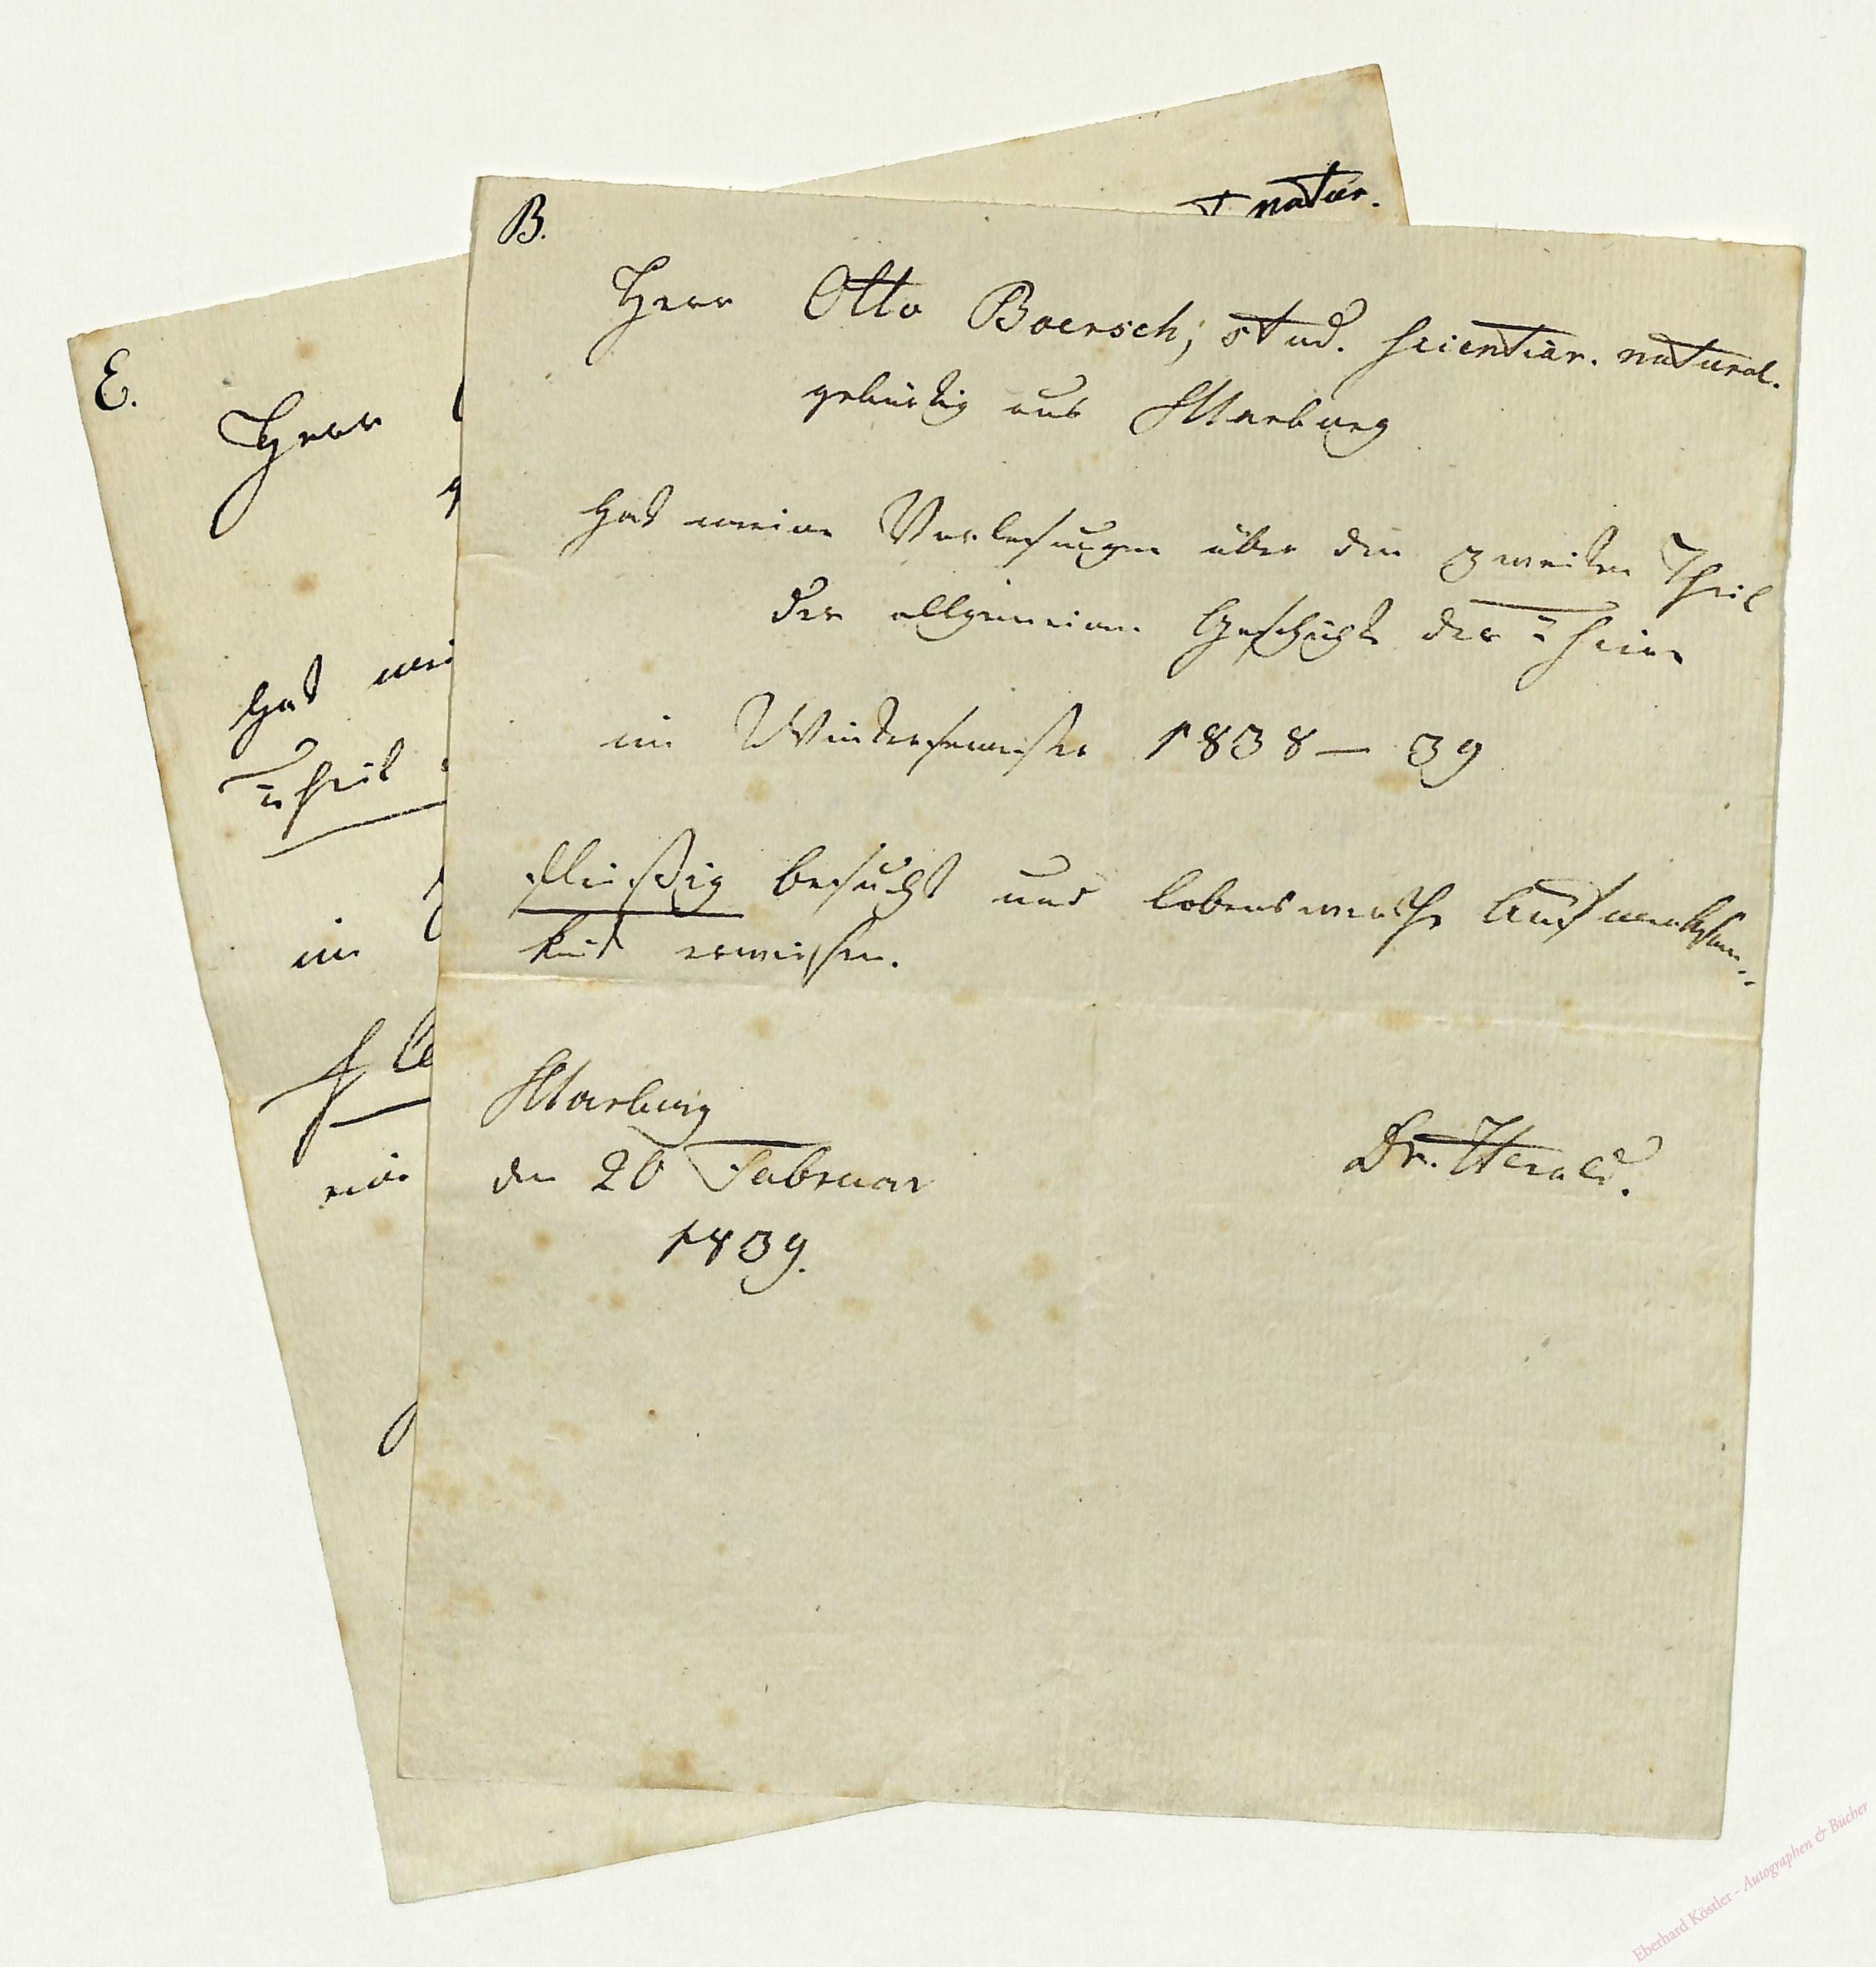 natur.
B.
Herr Otto Boersch; stud. scientiar. natural.
gebürtig aus Marburg
hat meine Vorlesungen über den zweiten Theil
der allgemeinen Geschichte der Thiere
im Wintersemester 1838 — 39
fleißig besucht und lobenswerthe Aufmerksam-
keit erwiesen.
Marburg
den 20 Februar
1839.
Dr. Herold.
E.
Herr
hat mei
Theil
im
eine
Eberhard Köstler - Autographen & Bücher